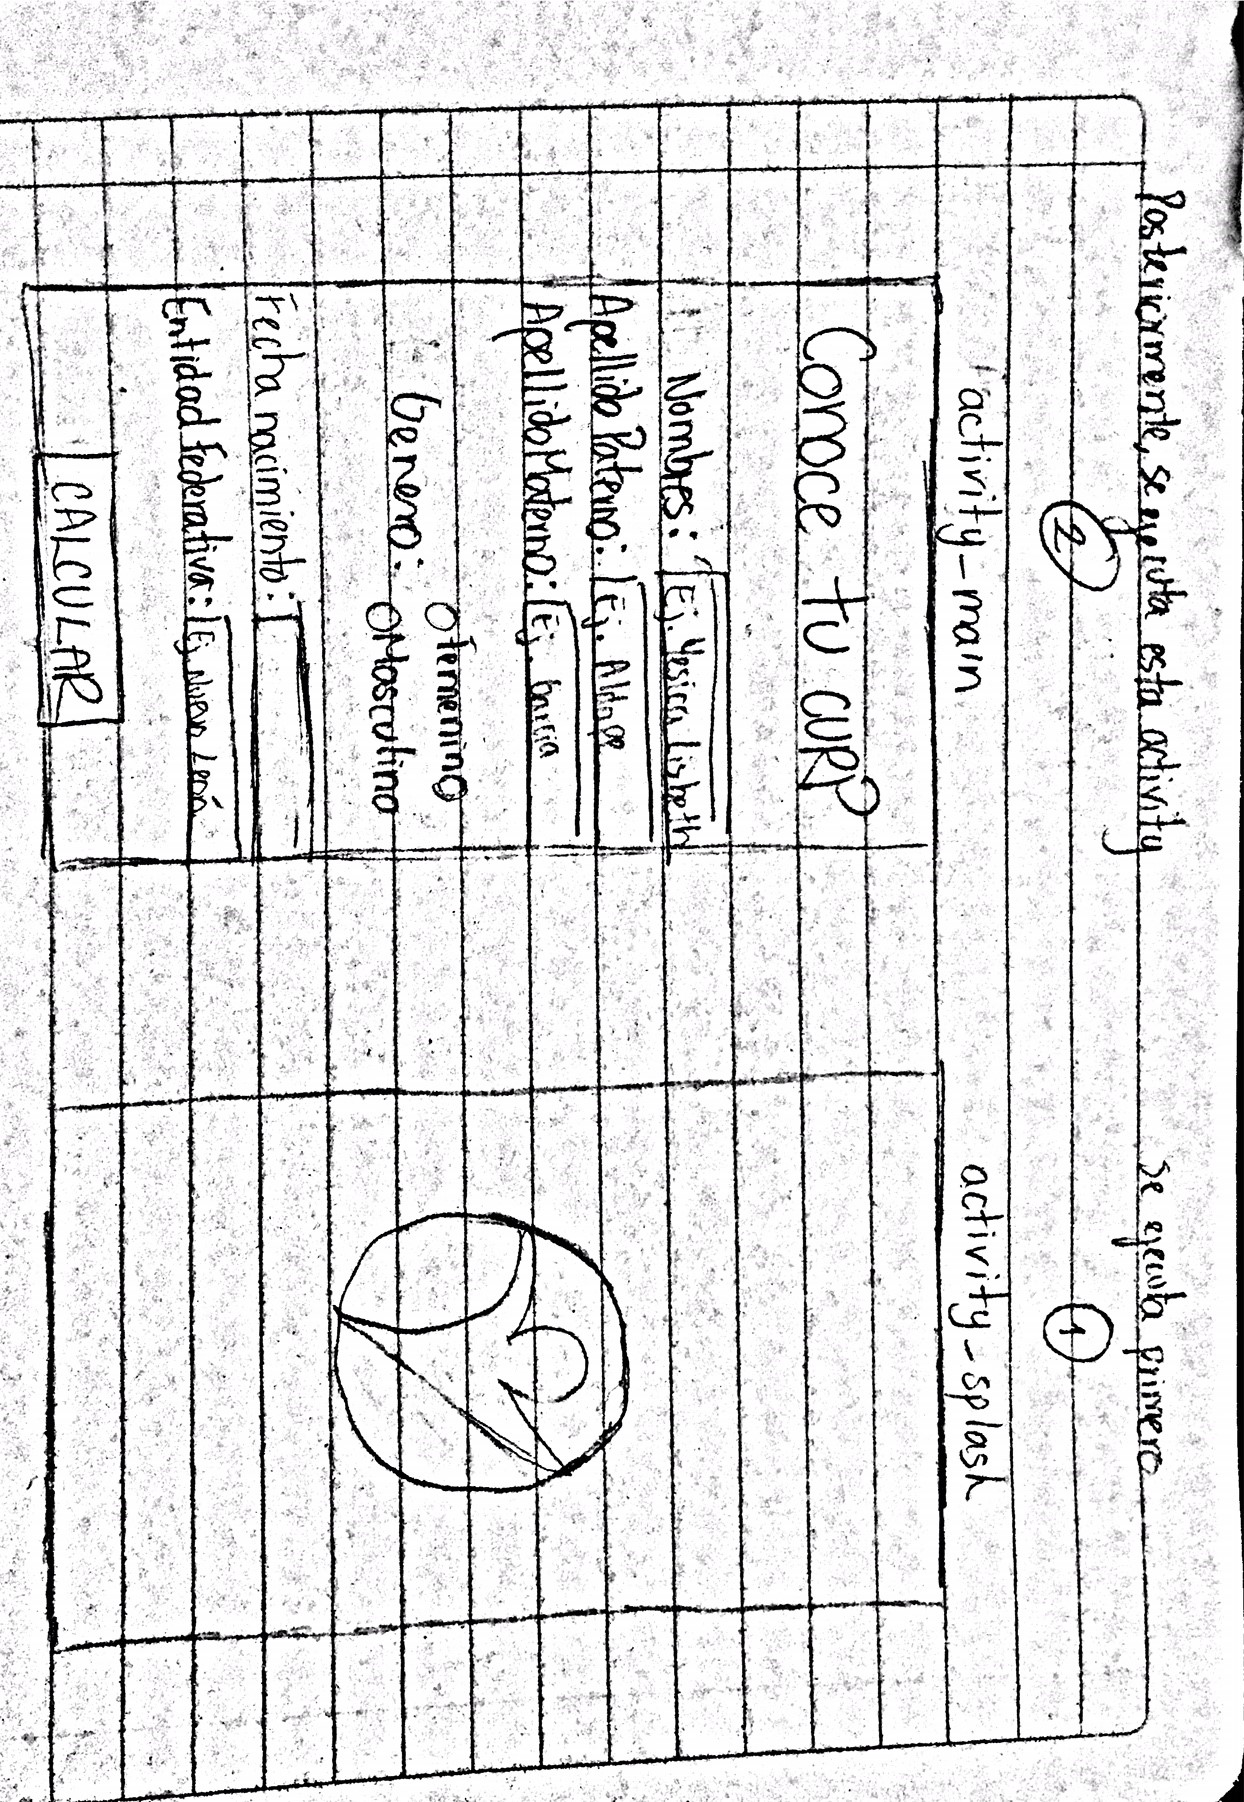 Posteriormente, se ejecuta esta activity
2
activity-main
Conoce tu CURP
Nombres: Ej. Yesica Lisbeth
Apellido Paterno: Ej. Aldape
Apellido Materno: Ej. García
Genero: Femenino
Masculino
Fecha nacimiento:
Entidad Federativa: Ej. Nuevo León
CALCULAR
Se ejecuta primero
1
activity-splash